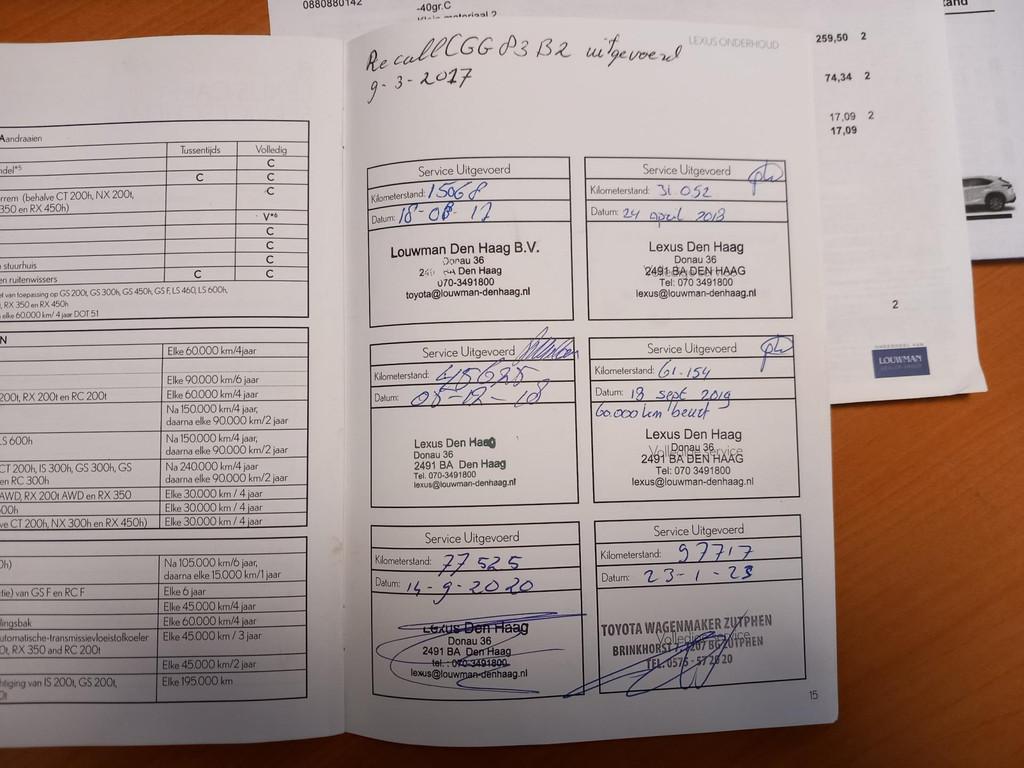 0880880142
-40gr.C
259,50 2
74,34 2
17,09 2
17,09
2
LOUWMAN
Aandraaien
Tussentijds Volledig
ndel*5 C
C C
rrem (behalve CT 200h, NX 200t, C
350 en RX 450h)
V*6
C
C
n stuurhuis C
en ruitenwissers C C
el van toepassing op GS 200t, GS 300h, GS 450h, GS F, LS 460, LS 600h,
, RX 350 en RX 450h
elke 60.000 km/ 4 jaar DOT 5.1
N
Elke 60.000 km/4jaar
Elke 90.000 km/6 jaar
200t, RX 200t en RC 200t Elke 60.000 km/4 jaar
Na 150.000 km/4 jaar,
daarna elke 90.000 km/2 jaar
LS 600h Na 150.000 km/4 jaar,
daarna elke 90.000 km/2 jaar
CT 200h, IS 300h, GS 300h, GS Na 240.000 km/4 jaar
en RC 300h daarna elke 90.000 km/2 jaar
AWD, RX 200t AWD en RX 350 Elke 30.000 km / 4 jaar
600h Elke 30.000 km / 4 jaar
ve CT 200h, NX 300h en RX 450h) Elke 30.000 km / 4 jaar
0h) Na 105.000 km/6 jaar,
daarna elke 15.000 km/1 jaar
tie) van GS F en RC F Elke 6 jaar
Elke 45.000 km/4 jaar
lingsbak Elke 60.000 km/4 jaar
utomatische-transmissievloeistofkoeler Elke 45.000 km / 3 jaar
0t, RX 350 and RC 200t
Elke 45.000 km/2 jaar
htiging van IS 200t, GS 200t, Elke 195.000 km
LEXUS ONDERHOUD
Recall CGG 83 B2 uitgevoerd
9-3-2017
Service Uitgevoerd
Kilometerstand: 15068
Datum: 18-08-17
Louwman Den Haag B.V.
Donau 36
Den Haag
070-3491800
toyota@louwman-denhaag.nl
Service Uitgevoerd
Kilometerstand: 31.052
Datum: 24 april 2018
Lexus Den Haag
Donau 36
2491 BA DEN HAAG
Tel: 070 3491800
lexus@louwman-denhaag.nl
Service Uitgevoerd
Kilometerstand: 45625
Datum: 05-12-18
Lexus Den Haag
Donau 36
2491 BA Den Haag
Tel. 070-3491800
lexus@louwman-denhaag.nl
Service Uitgevoerd
Kilometerstand: 61.154
Datum: 18 sept 2019
60.000 km beurt
Lexus Den Haag
Donau 36
Volledige service
2491 BA DEN HAAG
Tel: 070 3491800
lexus@louwman-denhaag.nl
Service Uitgevoerd
Kilometerstand: 77525
Datum: 14-9-2020
Lexus Den Haag
Donau 36
2491 BA Den Haag
tel.: 070-3491800
lexus@louwman-denhaag.nl
Service Uitgevoerd
Kilometerstand: 97717
Datum: 23-1-23
TOYOTA WAGENMAKER ZUTPHEN
Volledige service
BRINKHORST 7, 7207 BG ZUTPHEN
TEL. 0575 - 57 28 20
15